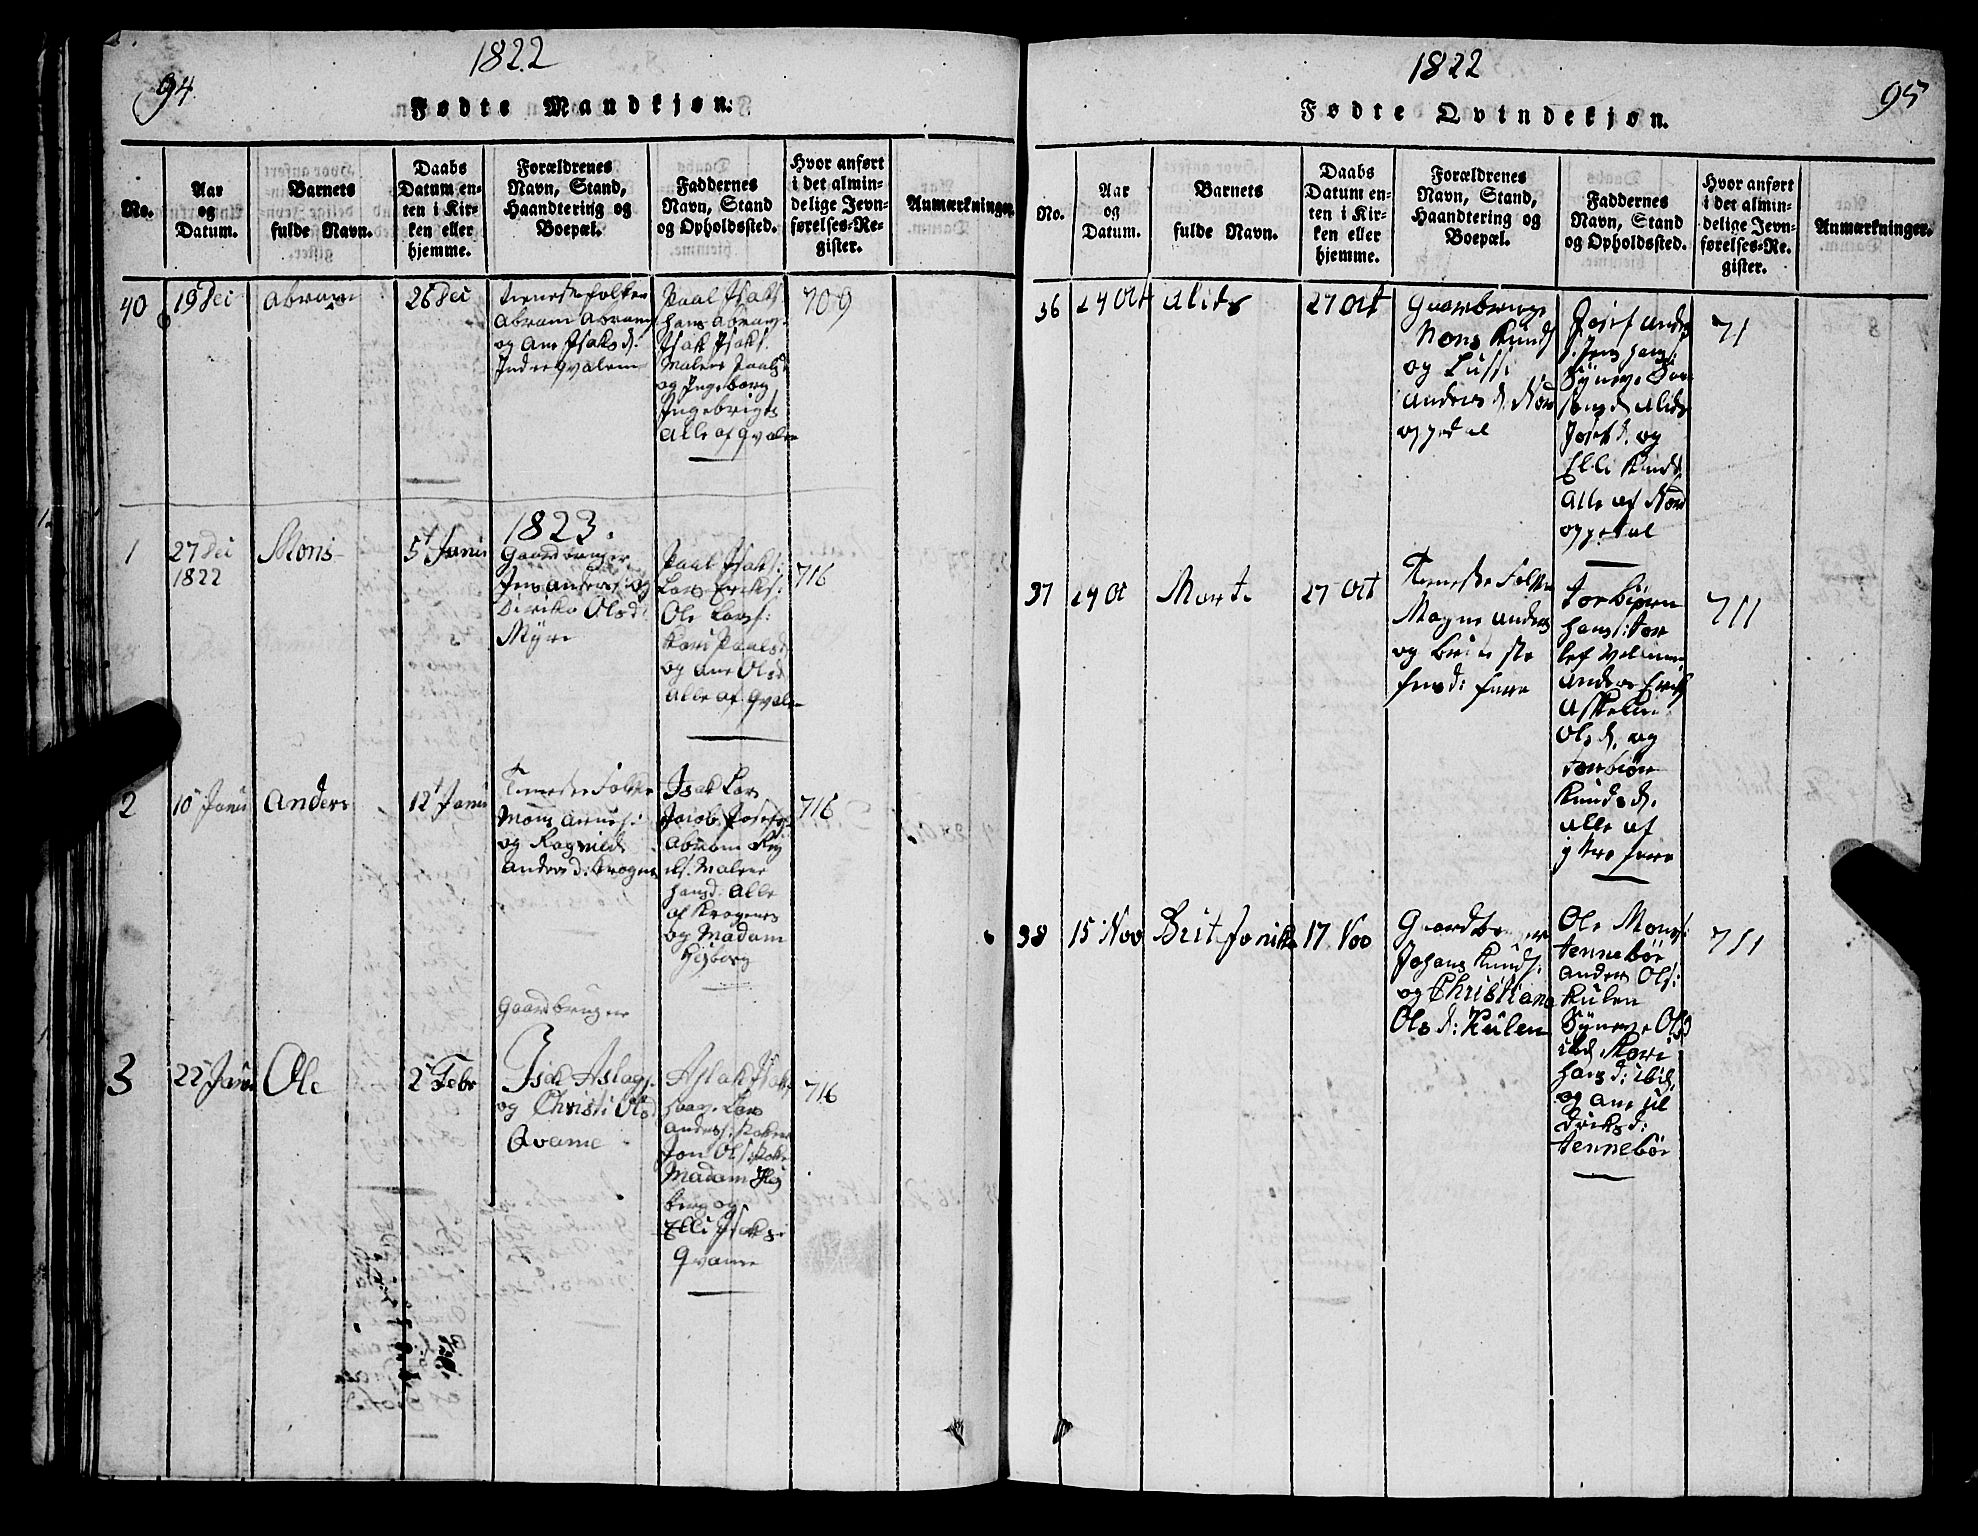 94
1822
Fødte Mandkjøn.
No.
Aar
og
Datum.
Barnets
fulde Navn.
Daabs
Datum en-
ten i Kir-
ken eller
hjemme.
Forældrenes
Navn, Stand,
Haandtering og
Boepæl.
Faddernes
Navn, Stand
og Opholdssted.
Hvor anført
i det almin-
delige Jevn-
førelses-Re-
gister.
Anmærkninger.
40
19 Dec
Abram
26 Dec
Tienestefolken
Abram Abrams
og Ane Isaks d.
Indre Qvalen
Paal Isaks.
Hans Abrams.
Isak Isaks.
Malene Paalsd
og Ingeborg
Ingebrigts
Alle af Qvalen
709
1823.
1
27 Dec
1822
Mons
5t Janu
Gaardbruger
Jens Anders: og
Olsd:
Myre
Paal Isaks:
Lars Eriks:
Ole Lars:
Kari Paalsd
og Ane Olsd
Alle af Qvalen
716
2
10 Janu
Anders
12t Janu
Tieneste Folk
Mons
og Ragnild
Anders d: Krogen
Isak Lars
Jacob Josefs.
Abram
Malene
Hansd. Alle
af Krogenes
og Madam
716
3
22 Janu
Ole
2 Febr
Gaardbruger
Isak Aslags.
og Christi Olsd
Qvame
Aslak Isaks.
Lars
Anders.
Jon Ols.
Madam
berg og
Elli Isaks:
Qvame
716
1822
95
Fødte Qvindekjøn.
No.
Aar
og
Datum.
Barnets
fulde Navn.
Daabs
Datum en-
ten i Kir-
ken eller
hjemme.
Forældrenes
Navn, Stand,
Haandtering og
Boepæl.
Faddernes
Navn, Stand
og Opholdssted.
Hvor anført
i det almin-
delige Jevn-
førelses-Re-
gister.
Anmærkninger.
36
24 Oct
Alids
27 Oct
Gaardbruge
Mons Knuds
og Lussi
Anders d. Nor
oppedal
Josef Anders
Jens Hans:
Syneve
Alids
Josef d. og
Elli Knudsd
Alle af Nor
oppedal
71
37
24 Oc
Marte
27 Oct
Tieneste Folk
Magne Anders
og Brite Ste
fens d:
Torbiørn
Hans: Tor
lef
Anders Eriks
Askelin
Ols d. og
Torbiør
Knuds d.
Alle af
711
38
15 Nov
Brit Janike
17 Nov
Gaardbruger
Johans Knuds:
og Christiana
Ols d: Kulen
Ole Mons:
Tennebør
Anders Ols:
Kulen
Syneve Olsd
ibd. Kari
Hansd: ibid.
og Ane Hil
driks d:
Tennebør
711